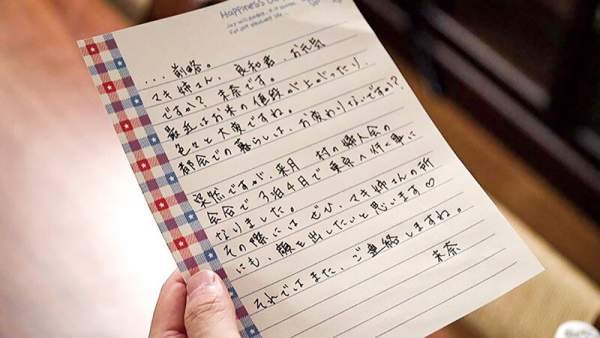 Happiness
...前略。
マキ姉さん、良和君、お元気
ですか? 末奈です。
最近はお米の値段が上がったり、
色々と大変ですね。
都会での暮らしは、お変わりないですか?
突然ですが、来月 村の婦人会の
会合で3泊4日で東京へ行く事に
なりました。
その際には ぜひ、マキ姉さんの所
にも、顔を出したいと思います♡
それではまた、ご連絡しますね。
末奈